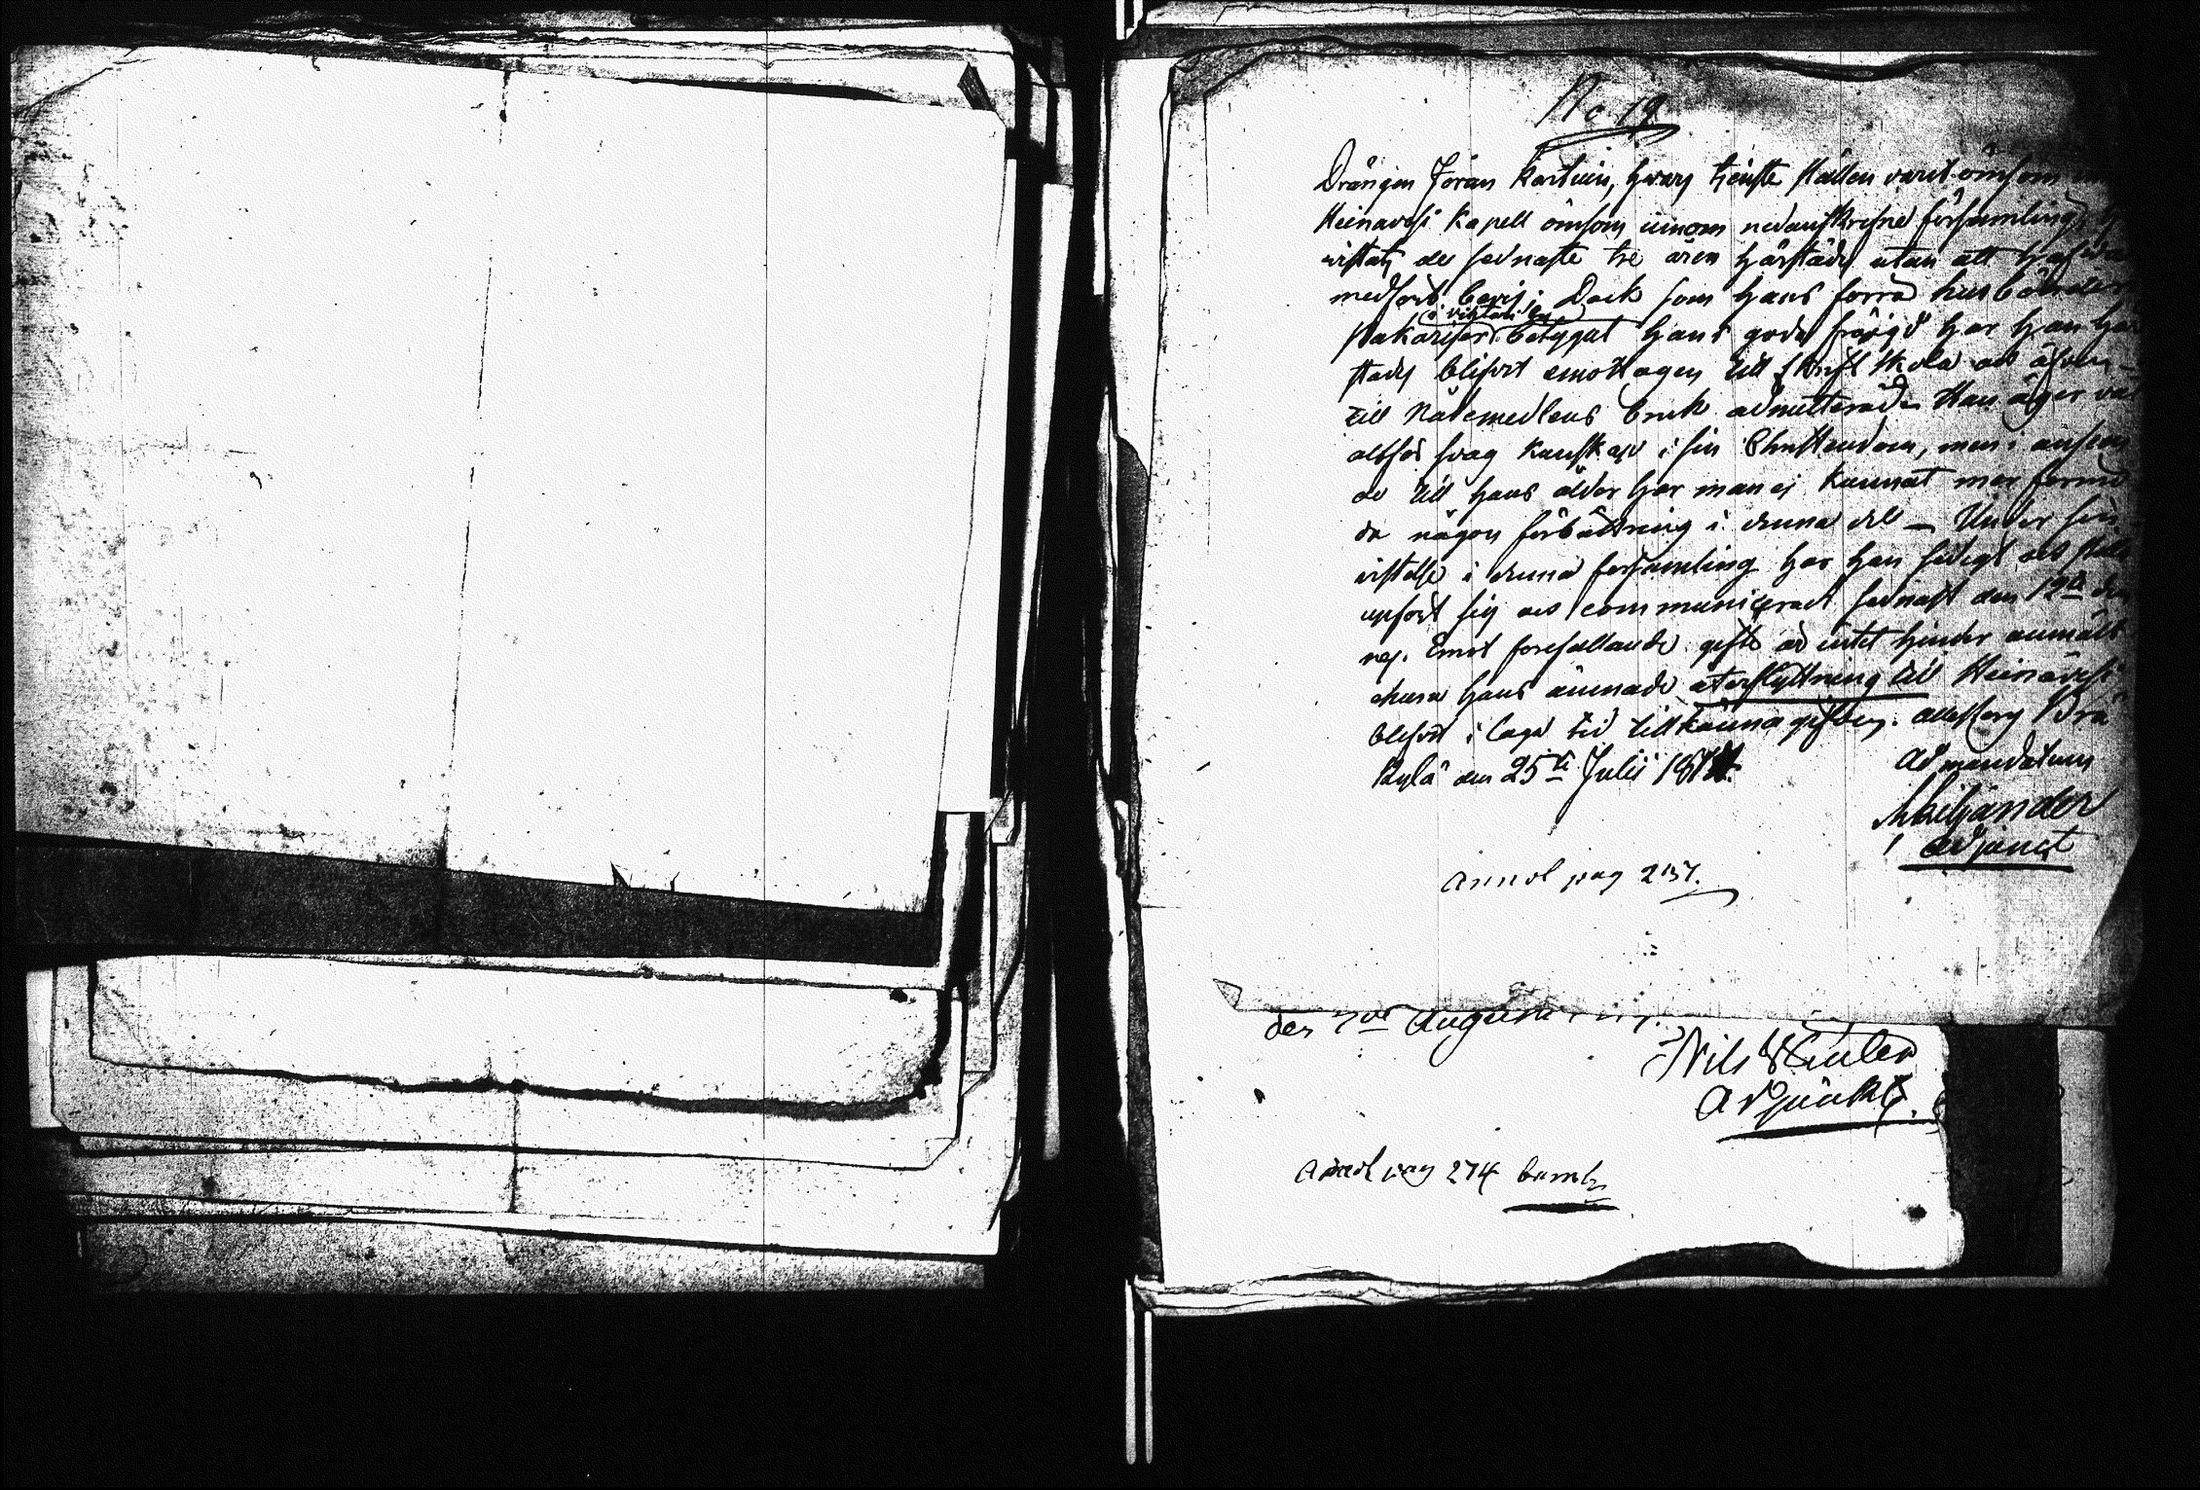 No 19
Drängen Jöran Kortnin, hwars tjenste ställen varit ömsom
Heinavesi Kapell ömsom innom nedanskrefne församling
vistats de sednaste tre åren härstädes utan att hafwa
medfört bevis; Dock som hans förra husbönder
i vistan
betygat hans goda frägd har han här
städes blifvit emottagen till skrift skola och äfven
till Nådemedlens bruk admitterad. Han äger väl
altför svag kunskap i sin Christendom, men i anseen
de till hans ålder har man ej kunnat mer förmo
da någon förbättring i denna del – Under sin
vistelse i denna församling har han sedigt och stilla
upfört sig och communicerat sednast den 12te
Emot förefallande gifte är intet hinder anmält
hans ämnade återflyttning till Heinävesi
blifvit i laga tid tillkänna gifven. attesterar Brä
Kylä den 25te Julii
Ad mandatum
Adjunct
annot pag 237.
den 7de Augusti
Nils
Adjunkt
annot pag 274